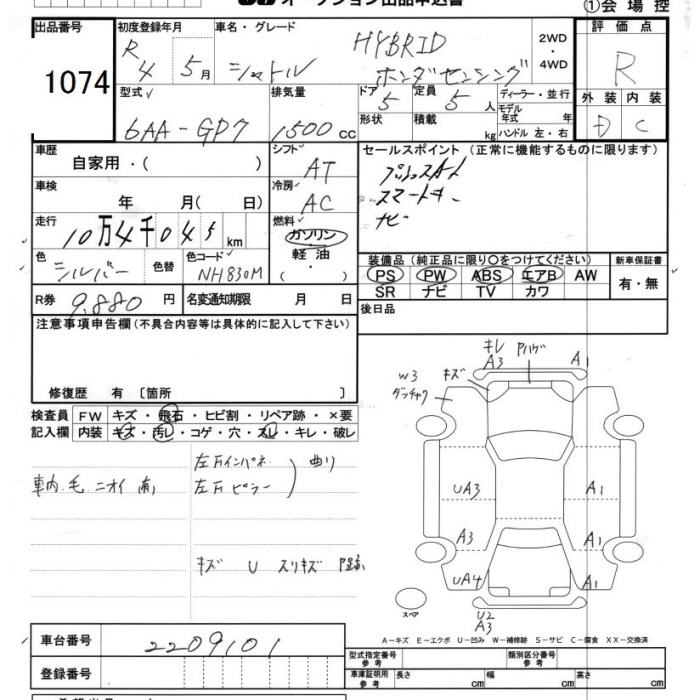 オークション出品申込書
①会場控
出品番号
1074
初度登録年月
R4 5月
車名・グレード
シャトル HYBRID ホンダセンシング
2WD・4WD
評価点
R
外装 内装
D C
型式
6AA-GP7
排気量
1500cc
ドア 5
定員 5人
形状
積載 kg
ディーラー・並行
モデル年式 年
ハンドル 左・右
車歴
自家用・( )
シフト
AT
車検
年 月( 日)
冷房
AC
走行
10万4千045km
燃料
ガソリン
軽油
・( )
色
シルバー
色替
色コード
NH830M
R券
9.880円
名変通知期限 月 日
セールスポイント(正常に機能するものに限ります)
プッシュスタート
スマートキー
ナビ
装備品(純正品に限り〇をつけてください)
PS PW ABS エアB AW
SR ナビ TV カワ
新車保証書
有・無
後日品
注意事項申告欄(不具合内容等は具体的に記入して下さい)
修復歴 有〔箇所 〕
検査員記入欄
FW キズ・飛石・ヒビ割・リペア跡・×要
内装 キズ・汚レ・コゲ・穴・スレ・キレ・破レ
車内、毛、ニオイ有
左Fインパネ
左Fピラー
曲り
キズ U スリキズ
キレ
A3
A1
W3
キズ
UA3
A1
A3
A1
UA4
A1
スペア
U2
A3
A−キズ E−エクボ U−凹み W−補修跡 S−サビ C−腐食 XX−交換済
車台番号
2209101
登録番号
型式指定番号 参考
類別区分番号 参考
車庫証明用 参考
長さ cm
幅 cm
高さ cm